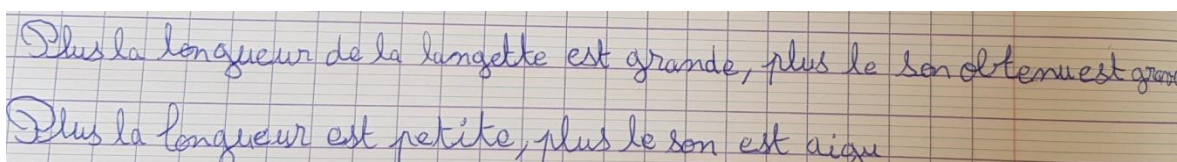 Plus la longueur de la langette est grande, plus le son obtenu est grave
Plus la longueur est petite, plus le son est aigu